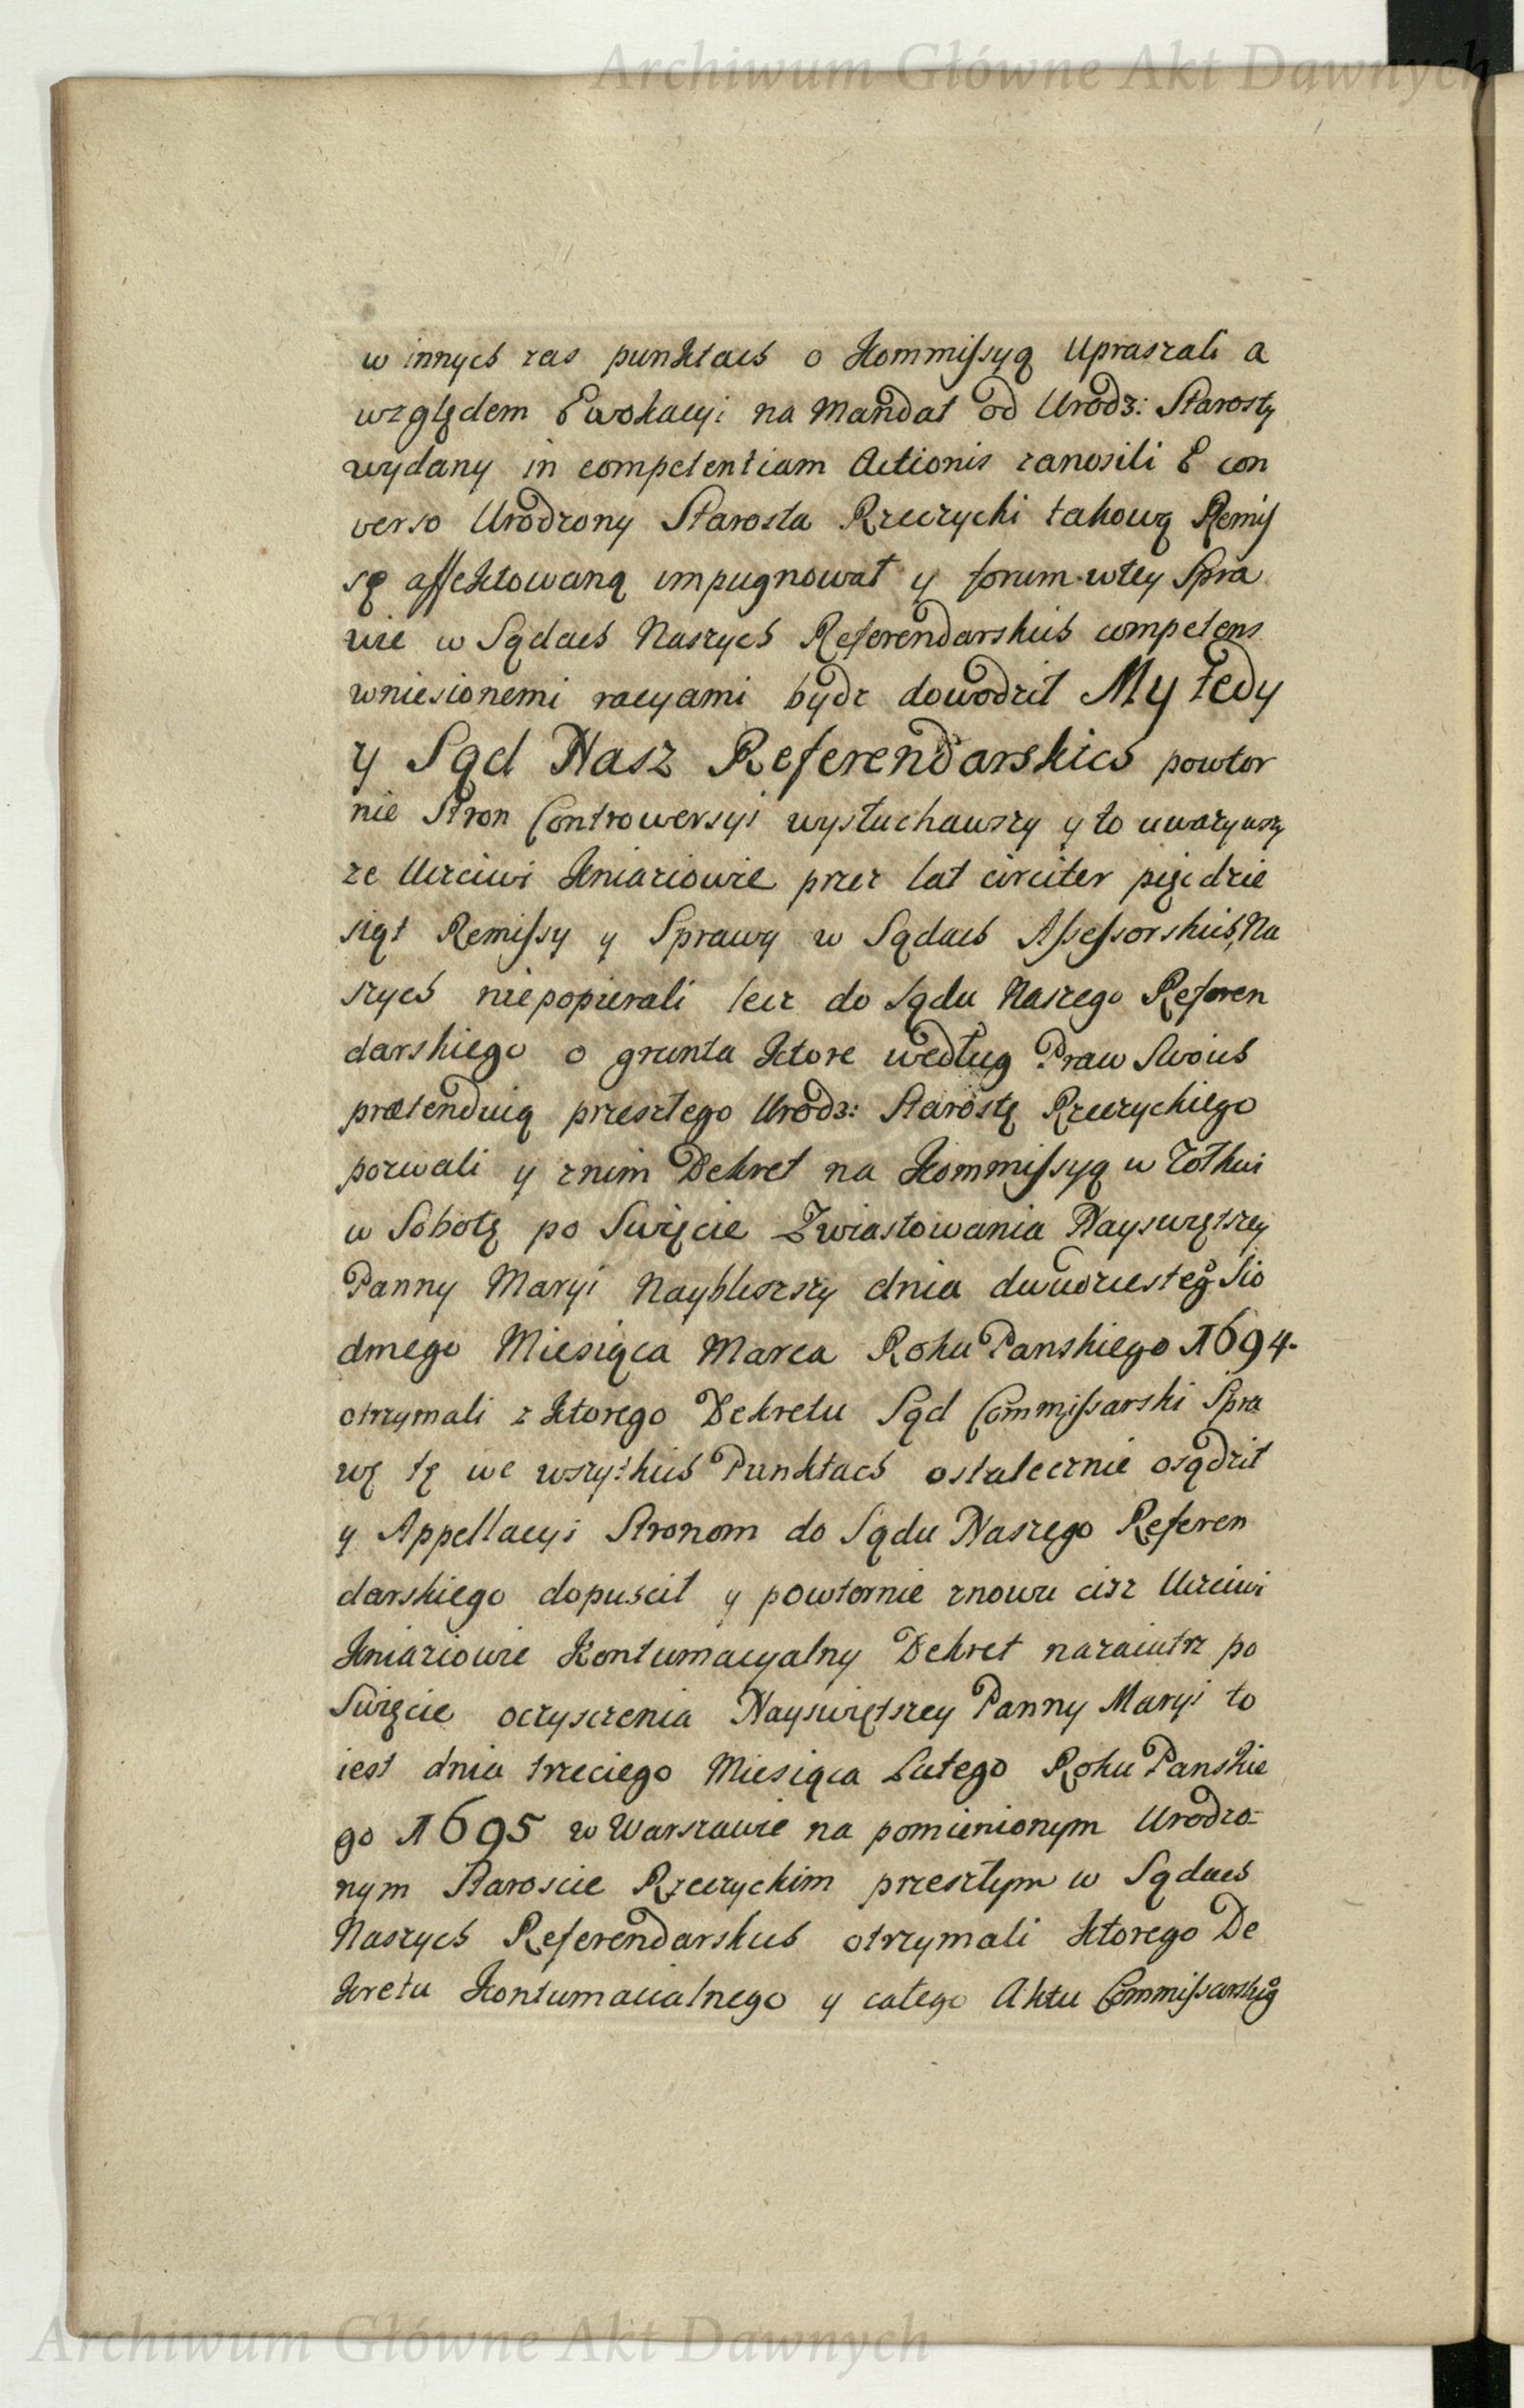 Archiwum Główne Akt Dawnych
w innych zas punktach o Kommissyą Upraszali a
względem Ewokacyi na Mandat od Urodz: Starosty
wydany in competentiam Actionis zanosili E con
verso Urodzony Starosta Rzeczycki takową Remis
sę affektowaną impugnował y forum w tey Spra
wie w Sądach Naszych Referendarskich competens
wniesionemi racyami bydz dowodził My Tedy
y Sąd Nasz Referendarskich powtor
nie Stron Controwersyi wysłuchawszy y to uwazywszy
ze Uczciwi Kniaziowie przez lat circiter pięcdzie
siąt Remissy y Sprawy w Sądach Assessorskich, Na
szych niepopierali lecz do Sądu Naszego Referen
darskiego o grunta Ktore według Praw Swoich
prætenduią przeszłego Urodz: Starostę Rzeczyckiego
pozwali y znim Dekret na Kommissyą w Zołkwi
w Sobotę po Swięcie Zwiastowania Nayswiętszey
Panny Maryi Naybliszszy dnia dwudziesteg̊ Sio
dmego Miesiąca Marca Roku Panskiego 1694.
otrzymali z Ktorego Dekretu Sąd Commissarski Spra
wę tę we wszytkich Punktach ostatecznie osądził
y Appellacyi Stronom do Sądu Naszego Referen
darskiego dopuscił y powtornie znowu cisz Uczciwi
Kniaziowie Kontumacyalny Dekret nazaiutrz po
Swięcie oczysczenia Nayswiętszey Panny Maryi to
iest dnia trzeciego Miesiąca Lutego Roku Panskie
go 1695 w Warszawie na pomienionym Urodzo-
nym Staroscie Rzeczyckim przeszłym w Sądach
Naszych Referendarskich otrzymali Ktorego De
Kretu Kontumacialnego y całego Aktu Commissarskieg̊
Archiwum Główne Akt Dawnych